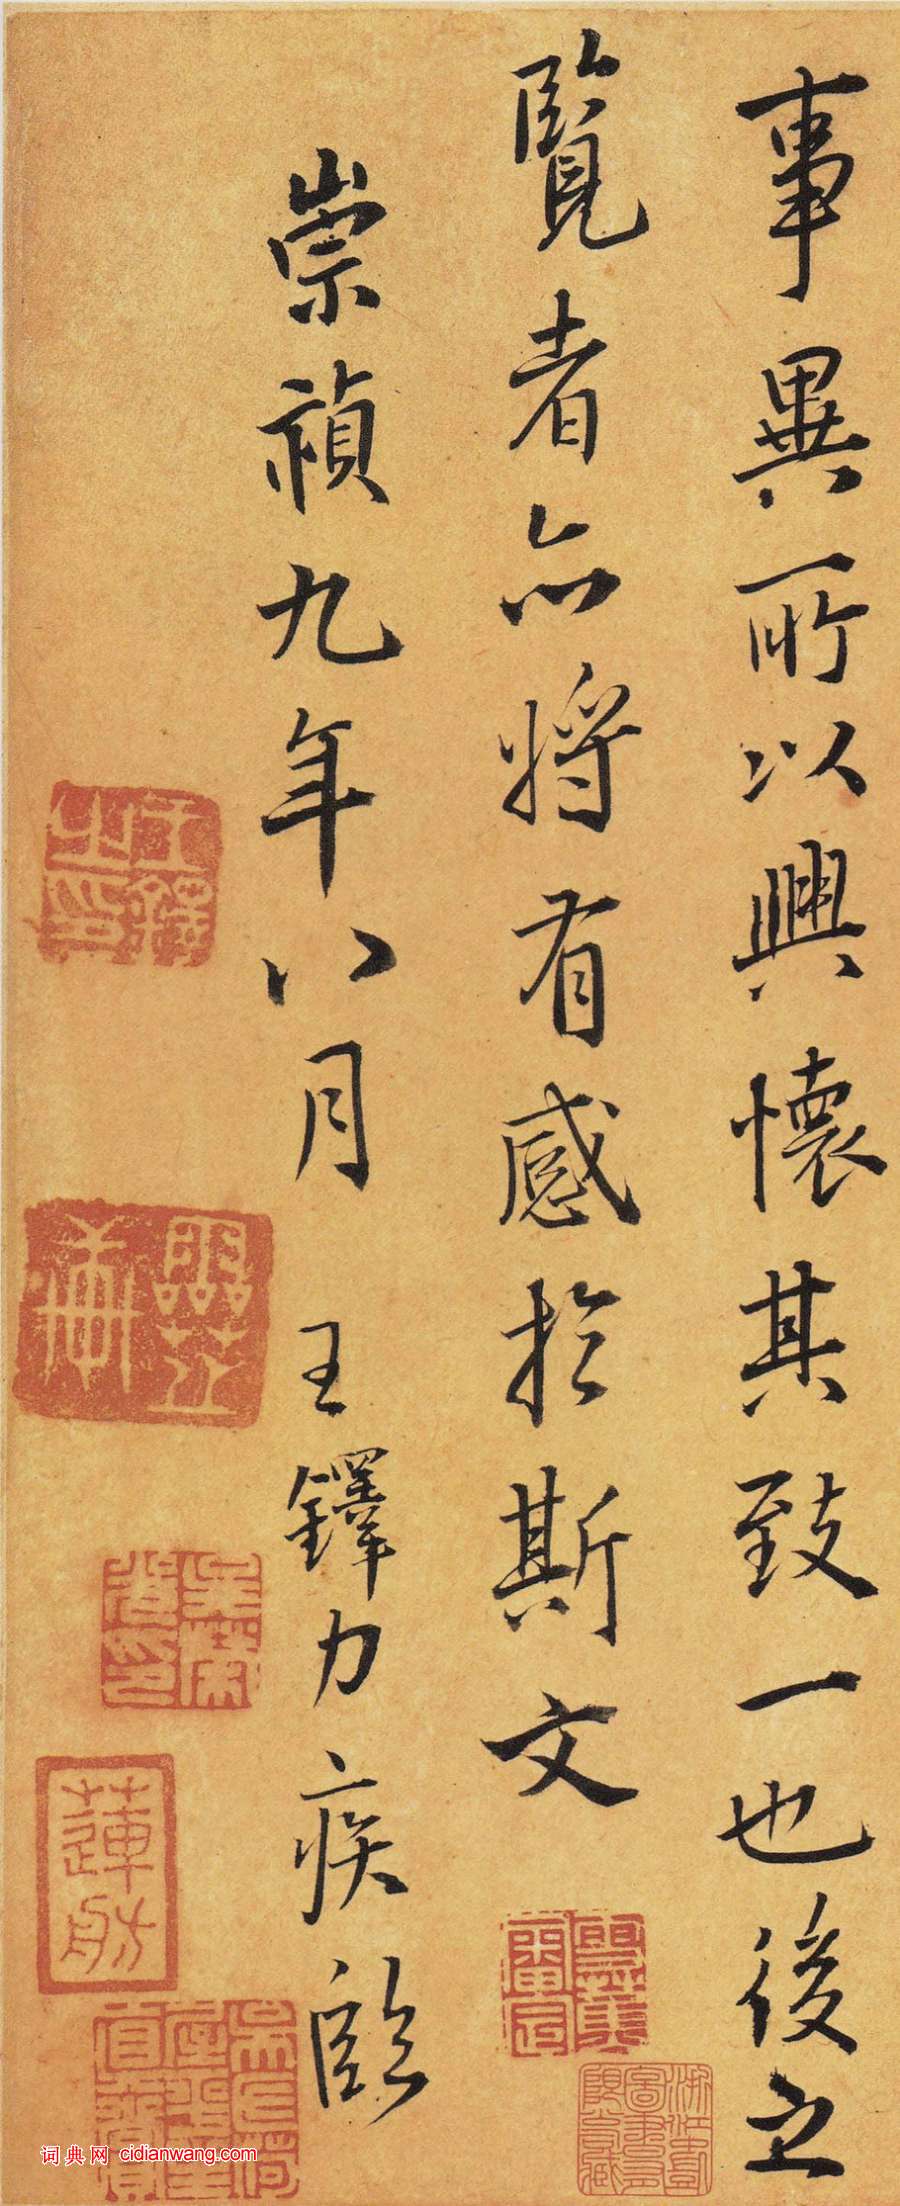 事異所以興懷其致一也後之
覽者亦將有感於斯文
崇禎九年八月 王鐸力疾臨
王鐸之印
蓮舫
词典网 cidianwang.com